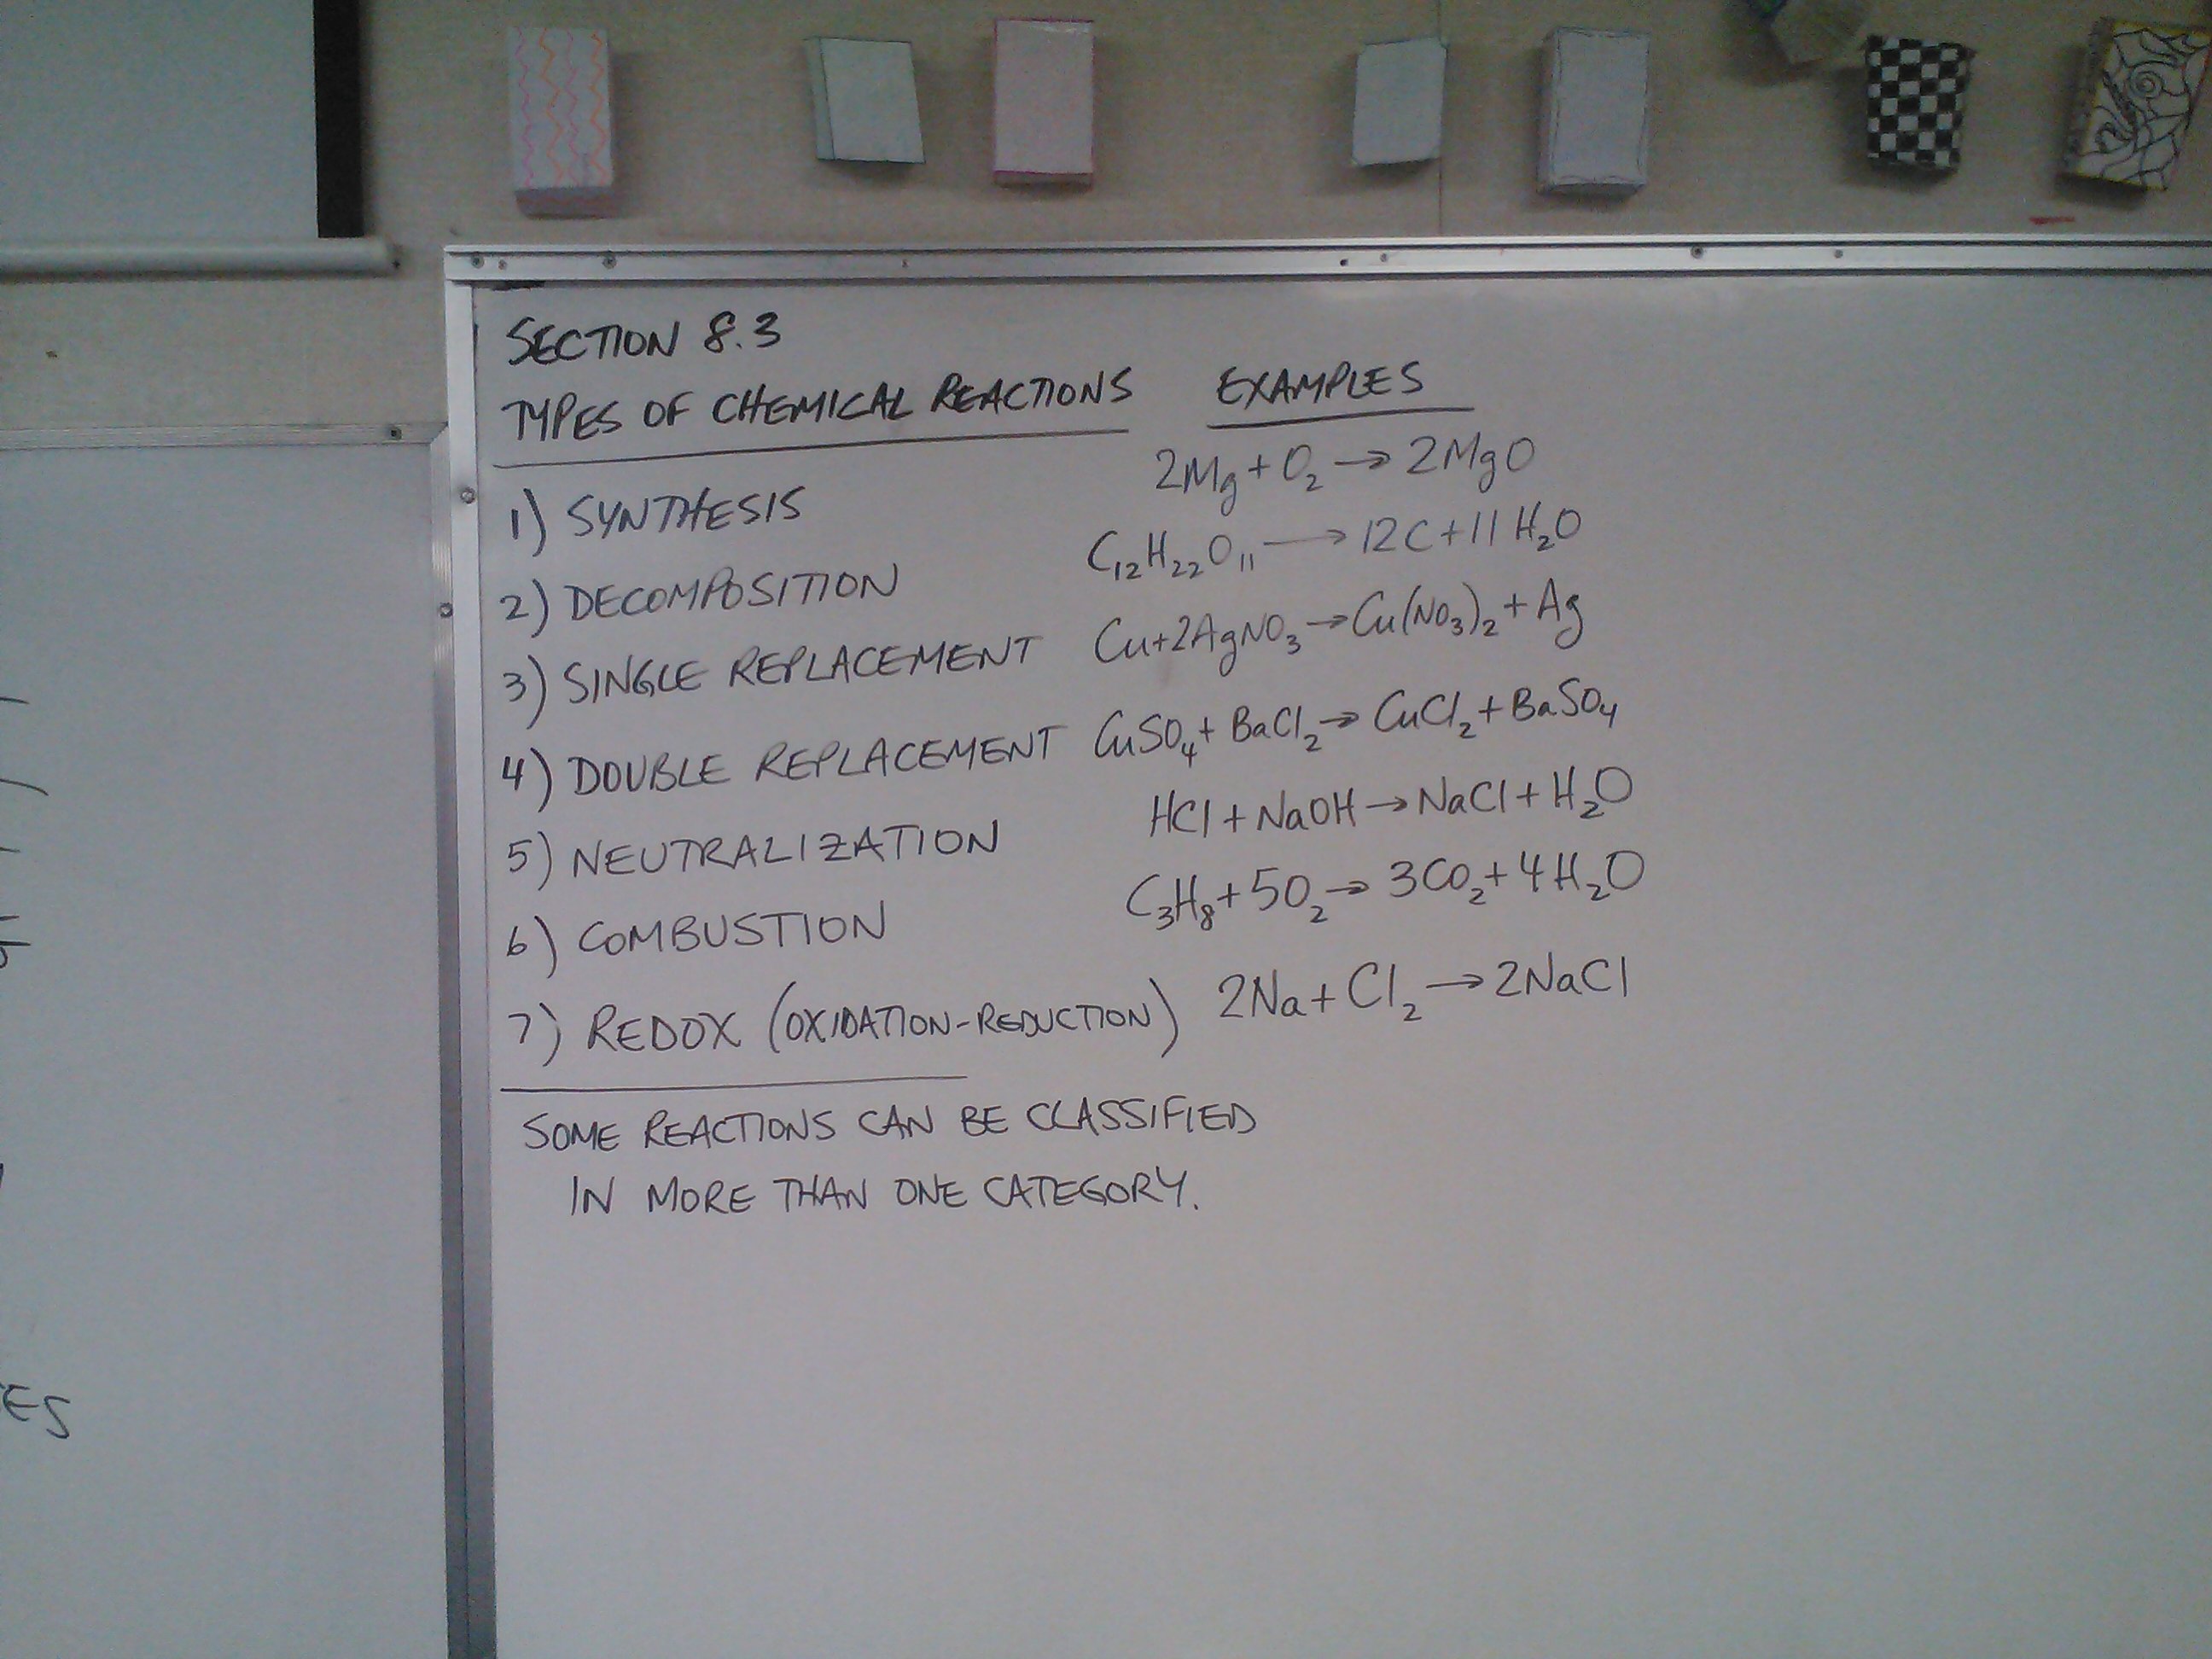 SECTION 8.3
TYPES OF CHEMICAL REACTIONS EXAMPLES
1) SYNTHESIS 2Mg + O₂ → 2MgO
2) DECOMPOSITION C₁₂H₂₂O₁₁ → 12C + 11H₂O
3) SINGLE REPLACEMENT Cu + 2AgNO₃ → Cu(NO₃)₂ + Ag
4) DOUBLE REPLACEMENT CuSO₄ + BaCl₂ → CuCl₂ + BaSO₄
5) NEUTRALIZATION HCl + NaOH → NaCl + H₂O
6) COMBUSTION C₃H₈ + 5O₂ → 3CO₂ + 4H₂O
7) REDOX (OXIDATION-REDUCTION) 2Na + Cl₂ → 2NaCl
SOME REACTIONS CAN BE CLASSIFIED
IN MORE THAN ONE CATEGORY.
ES